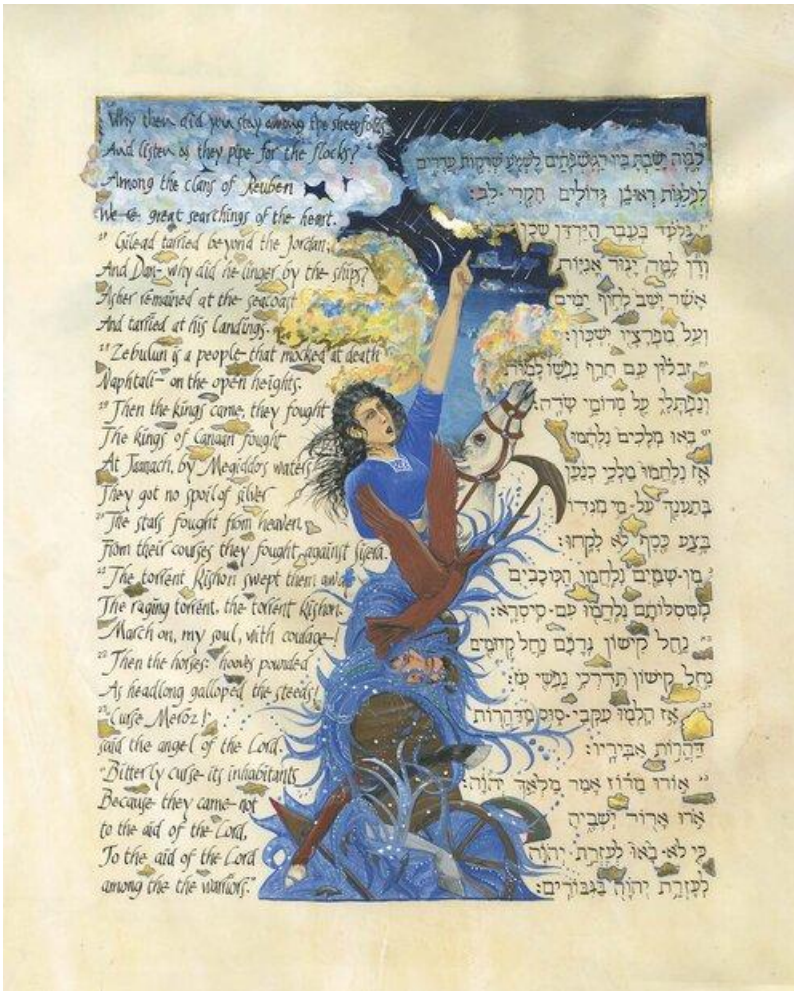 "Why then did you stay among the sheepfolds
And listen as they pipe for the flocks?
Among the clans of Reuben
were great searchings of the heart.
17 Gilead tarried beyond the Jordan;
And Dan- why did he linger by the ships?
Asher remained at the seacoast
And tarried at his landings.
18 Zebulun is a people that mocked at death
Naphtali- on the open heights.
19 Then the kings came, they fought
The kings of Canaan fought
At Taanach, by Megiddo's waters
They got no spoil of silver
20 The stars fought from heaven,
From their courses they fought against Sisera.
21 The torrent Kishon swept them away
The raging torrent, the torrent Kishon.
March on, my soul, with courage!
22 Then the horses' hooves pounded
As headlong galloped the steeds!
23 "Curse Meroz!"
said the angel of the Lord.
"Bitterly curse its inhabitants
Because they came not
to the aid of the Lord,
To the aid of the Lord
among the the warriors."
למה ישבת בין המשפתים לשמע שרקות עדרים
לפלגות ראובן גדולים חקרי-לב:
גלעד בעבר הירדן שכן
ודן למה יגור אניות
אשר ישב לחוף ימים
ועל מפרציו ישכון:
זבלון עם חרף נפשו למות
ונפתלי על מרומי שדה:
באו מלכים נלחמו
אז נלחמו מלכי כנען
בתענך על-מי מגדו
בצע כסף לא לקחו:
מן-שמים נלחמו הכוכבים
ממסלותם נלחמו עם-סיסרא:
נחל קישון גרפם נחל קדומים
נחל קישון תדרכי נפשי עז:
אז הלמו עקבי-סוס מדהרות
דהרות אביריו:
אורו מרוז אמר מלאך יהוה:
ארו ארור ישביה
כי לא-באו לעזרת יהוה
לעזרת יהוה בגבורים: